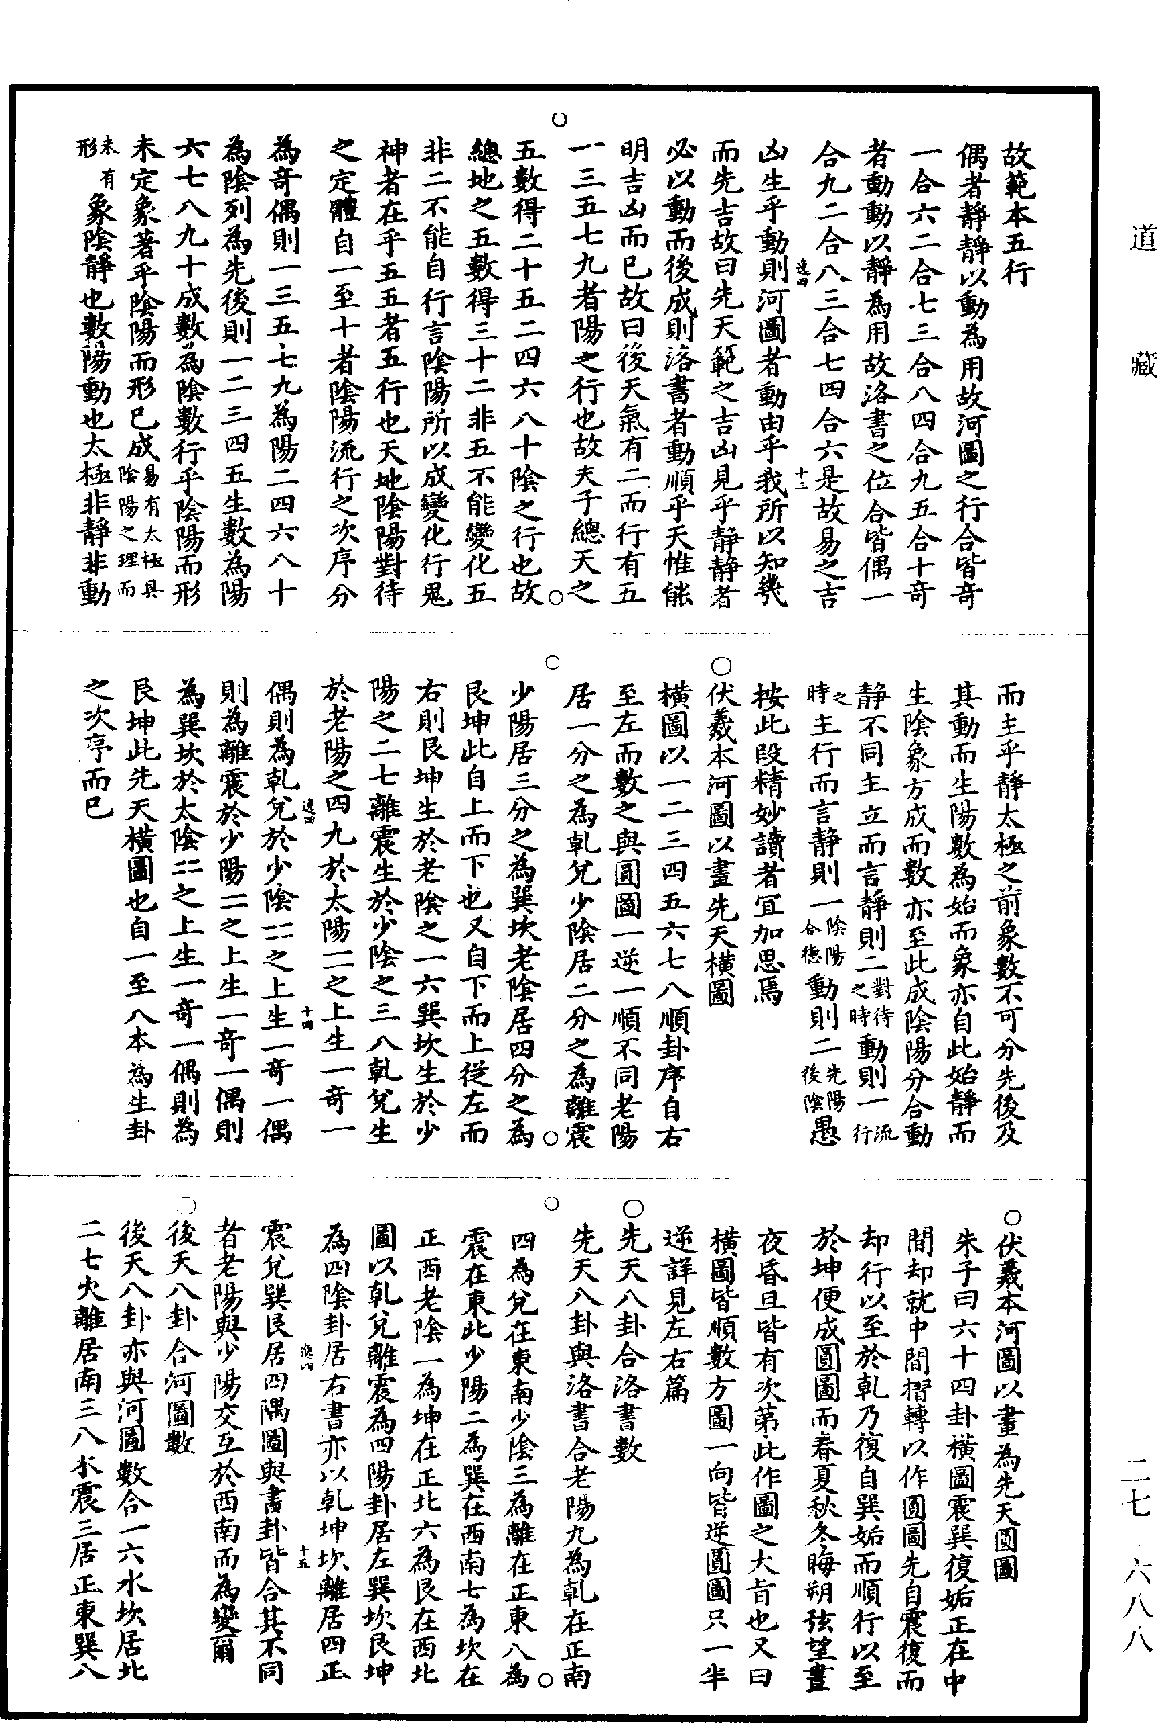 道藏
二七·六八八
故範本五行
偶者靜靜以動為用故河圖之行合皆奇
一合六二合七三合八四合九五合十奇
者動動以靜為用故洛書之位合皆偶一
合九二合八三合七四合六是故易之吉
凶生乎動則河圖者動由乎我所以知幾
而先吉故曰先天範之吉凶見乎靜靜者
必以動而後成則洛書者動順乎天惟能
明吉凶而已故曰後天氣有二而行有五
一三五七九者陽之行也故夫子總天之
五數得二十五二四六八十陰之行也故
總地之五數得三十二非五不能變化五
非二不能自行言陰陽所以成變化行鬼
神者在乎五五者五行也天地陰陽對待
之定體自一至十者陰陽流行之次序分
為奇偶則一三五七九為陽二四六八十
為陰列為先後則一二三四五生數為陽
六七八九十成數為陰數行乎陰陽而形
未定象著乎陰陽而形已成易有太極具陰陽之理而
未有形象陰靜也數陽動也太極非靜非動
而主乎靜太極之前象數不可分先後及
其動而生陽數為始而象亦自此始靜而
生陰象方成而數亦至此成陰陽分合動
靜不同主立而言靜則二對待之時動則一流行
之時主行而言靜則一陰陽合德動則二先陽後陰愚
按此段精妙讀者宜加思焉
○伏羲本河圖以畫先天橫圖
橫圖以一二三四五六七八順卦序自右
至左而數之與圓圖一逆一順不同老陽
居一分之為乾兌少陰居二分之為離震
少陽居三分之為巽坎老陰居四分之為
艮坤此自上而下也又自下而上從左而
右則艮坤生於老陰之一六巽坎生於少
陽之二七離震生於少陰之三八乾兌生
於老陽之四九於太陽⚌之上生一奇一
偶則為乾兌於少陰⚍之上生一奇一偶
則為離震於少陽⚎之上生一奇一偶則
為巽坎於太陰⚏之上生一奇一偶則為
艮坤此先天橫圖也自一至八本為生卦
之次序而已
○伏羲本河圖以畫為先天圓圖
朱子曰六十四卦橫圖震巽復姤正在中
間却就中間摺轉以作圓圖先自震復而
却行以至於乾乃復自巽姤而順行以至
於坤便成圓圖而春夏秋冬晦朔弦望晝
夜昏旦皆有次第此作圖之大旨也又曰
橫圖皆順數方圖一向皆逆圓圖只一半
逆詳見左右篇
○先天八卦合洛書數
先天八卦與洛書合老陽九為乾在正南
四為兌在東南少陰三為離在正東八為
震在東北少陽二為巽在西南七為坎在
正西老陰一為坤在正北六為艮在西北
圖以乾兌離震為四陽卦居左巽坎艮坤
為四陰卦居右書亦以乾坤坎離居四正
震兌巽艮居四隅圖與書卦皆合其不同
者老陽與少陽交互於西南而為變爾
○後天八卦合河圖數
後天八卦亦與河圖數合一六水坎居北
二七火離居南三八木震三居正東巽八